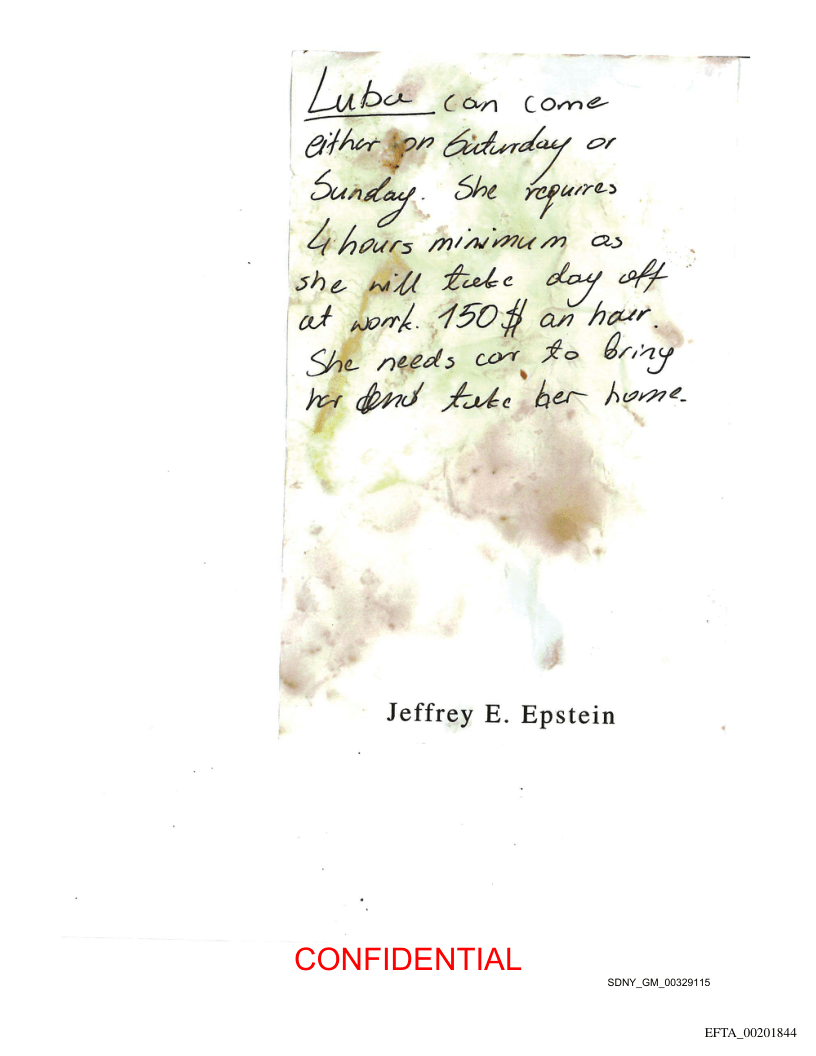 Luba can come
either on Saturday or
Sunday. She requires
4 hours minimum as
she will take day off
at work. 150$ an hour.
She needs car to bring
her and take her home.
Jeffrey E. Epstein
CONFIDENTIAL
SDNY_GM_00329115
EFTA_00201844